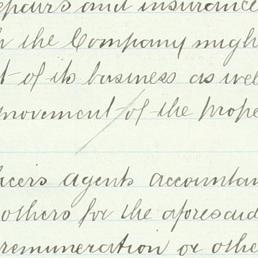 epairs and insurance
the Company migh
t of its business as wel
provement of the prope
icers agents accountan
others for the aforesaid
remuneration or othe